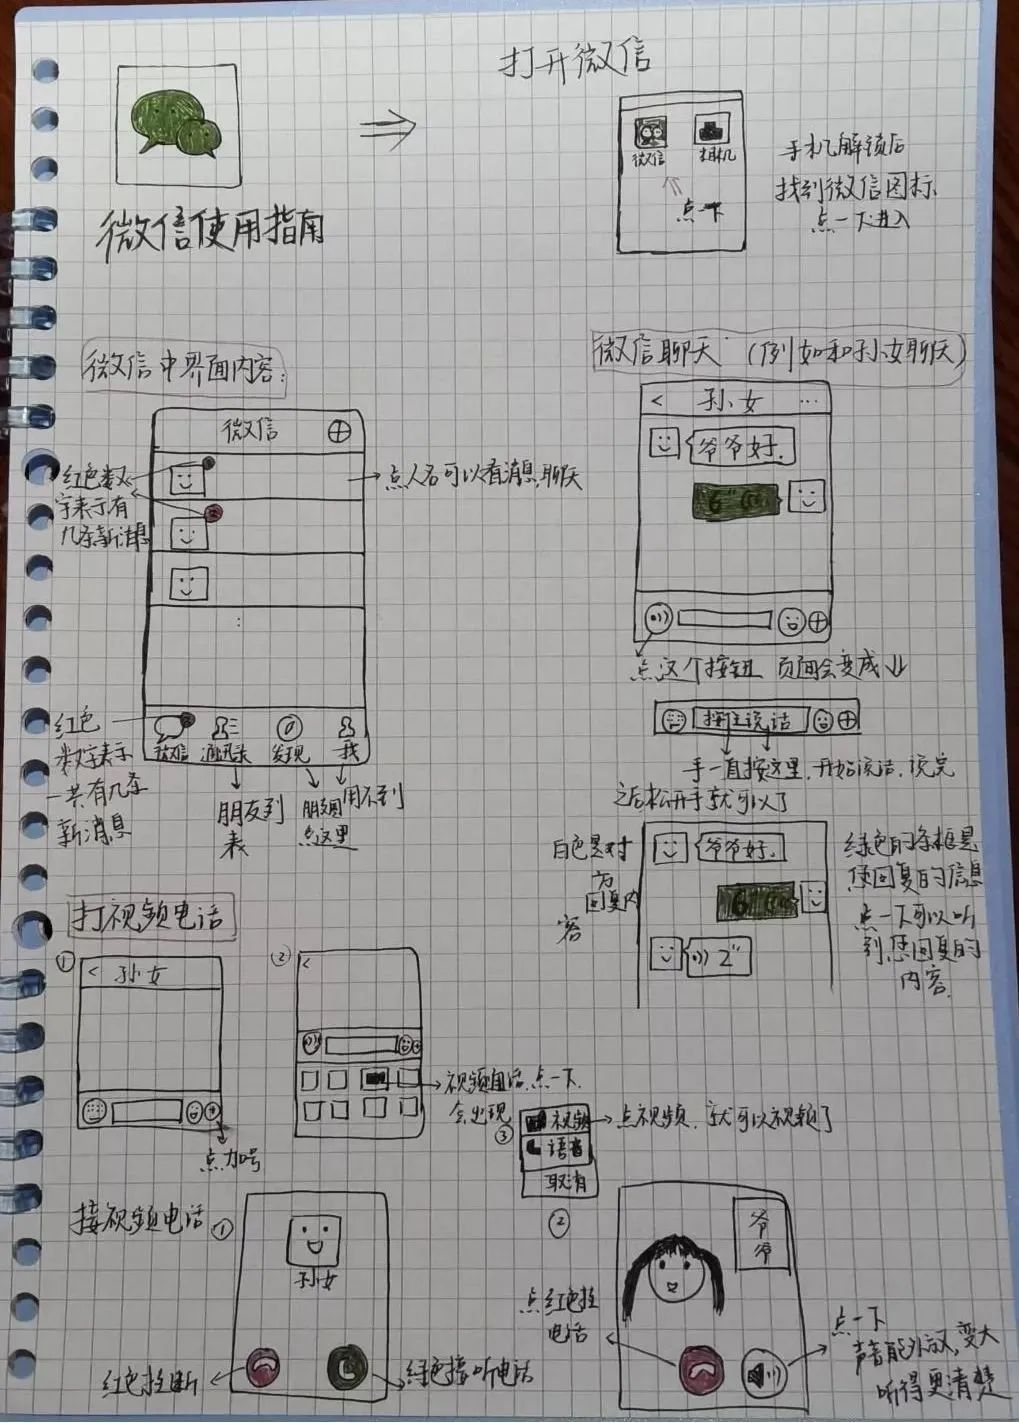 打开微信
微信使用指南
微信
相机
点一下
手机解锁后
找到微信图标
点一下进入
微信中界面内容:
微信
红色数
字表示有
几条新消息
点人名可以看消息,聊天
2
微信
通讯录
发现
我
红色
数字表示
一共有几条
新消息
朋友列
表
朋友圈
点这里
用不到
微信聊天 (例如和孙女聊天)
< 孙女 ...
爷爷好.
6"
点这个按钮 页面会变成
按住说话
手一直按这里,开始说话,说完
之后松开手就可以了
白色是对
方
回复内
容
爷爷好.
6"
2"
绿色的条框是
您回复的信息
点一下可以听
到您回复的
内容.
打视频电话
①
< 孙女
点加号
②
<
视频电话,点一下.
会出现
③
视频
语音
取消
点视频,就可以视频了
接视频电话
①
孙女
红色挂断
绿色接听电话
②
爷爷
点红色挂
电话
点一下
声音能外放,变大
听得更清楚